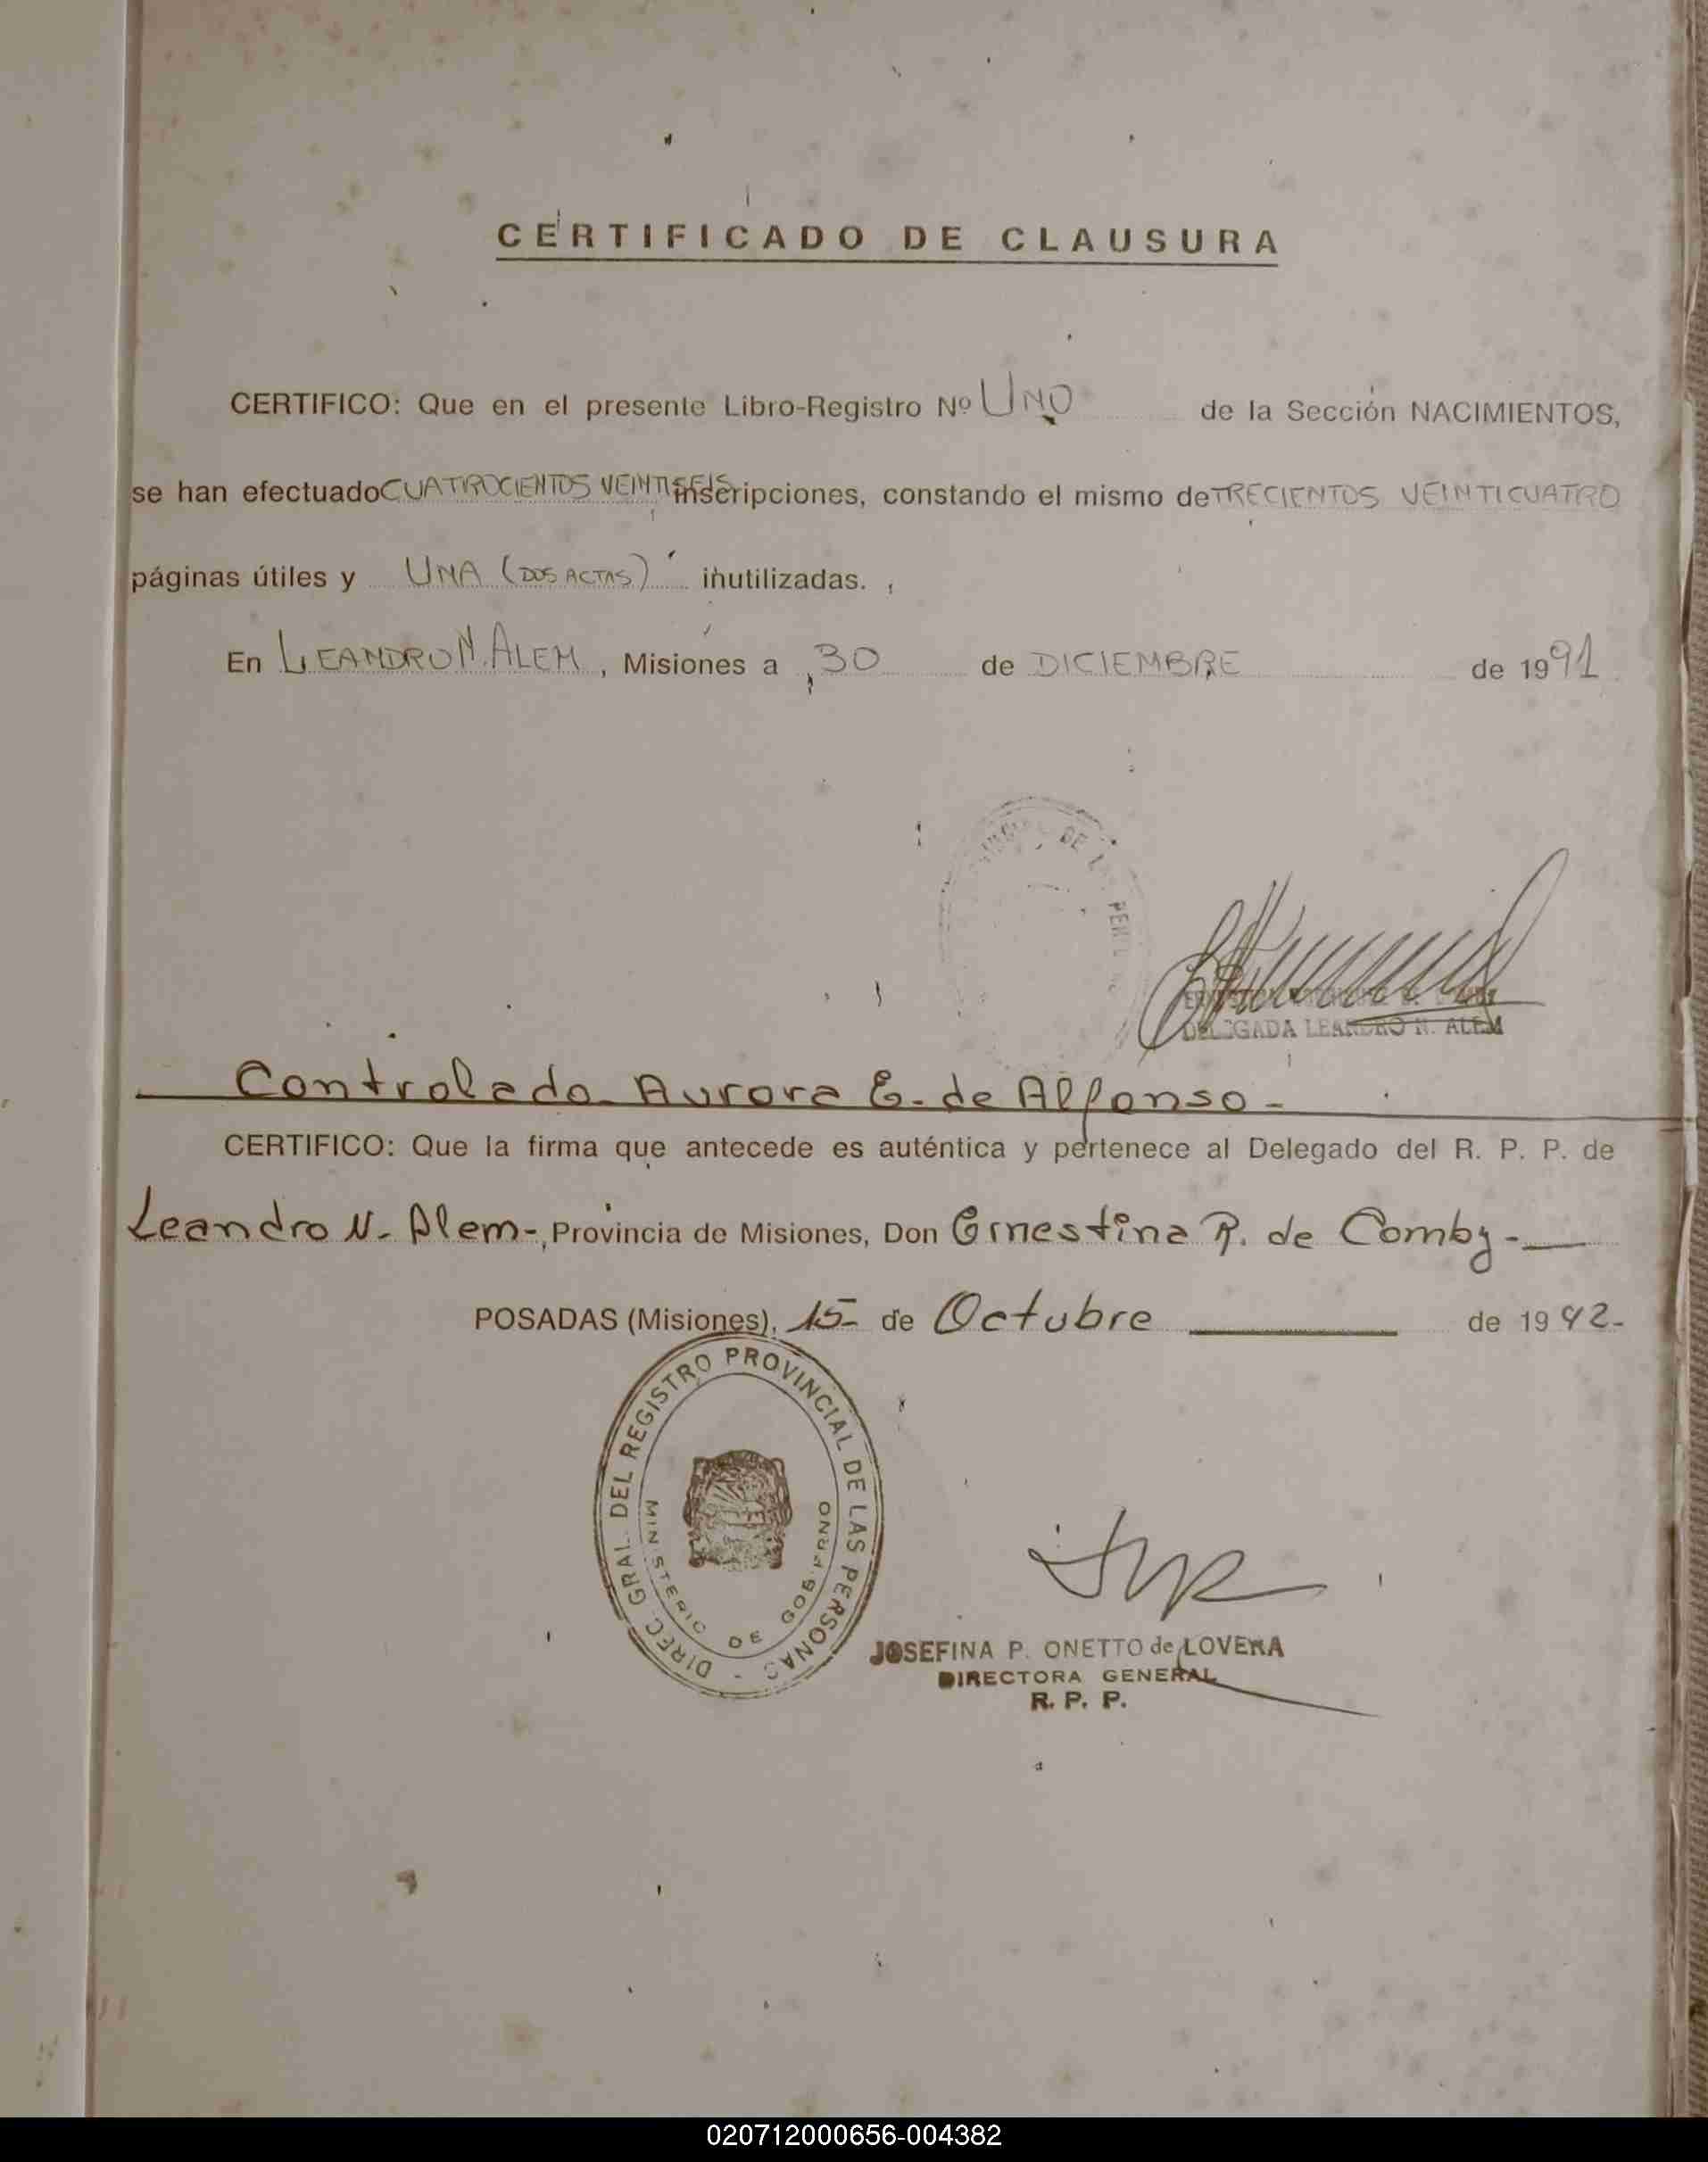 CERTIFICADO DE CLAUSURA
CERTIFICO: Que en el presente Libro-Registro Nº UNO de la Sección NACIMIENTOS,
se han efectuado CUATROCIENTOS VEINTISEIS inscripciones, constando el mismo de TRECIENTOS VEINTICUATRO
páginas útiles y UNA (DOS ACTAS) inutilizadas.
En LEANDRO N. ALEM, Misiones a 30 de DICIEMBRE de 1991
DE LA PER
DELEGADA LEANDRO N. ALEM
Controlado Aurora E. de Alfonso-
CERTIFICO: Que la firma que antecede es auténtica y pertenece al Delegado del R. P. P. de
Leandro N. Alem-, Provincia de Misiones, Don Ernestina R. de Comby-
POSADAS (Misiones), 15 de Octubre de 1992-
DIREC. GRAL. DEL REGISTRO PROVINCIAL DE LAS PERSONAS -
MINISTERIO DE GOBIERNO
JOSEFINA P. ONETTO de LOVERA
DIRECTORA GENERAL
R. P. P.
020712000656-004382